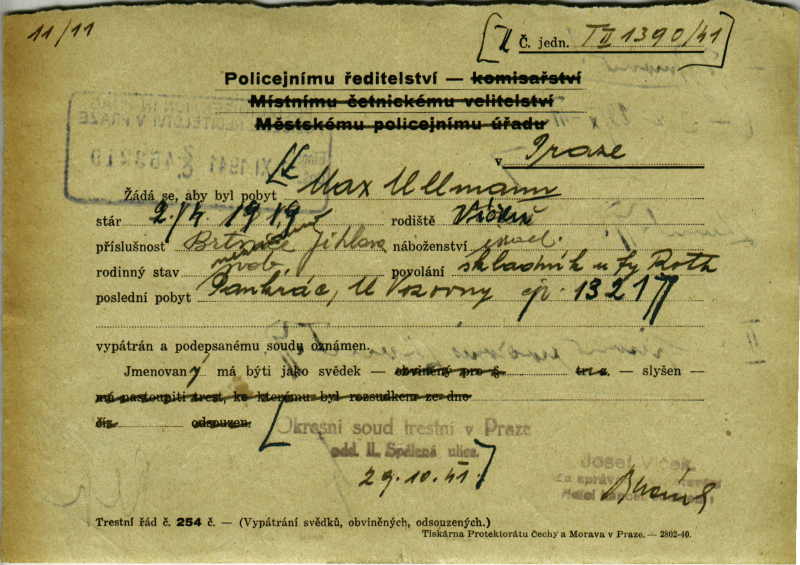 11/11
Č. jedn. T II 1390/41
Policejnímu ředitelství — komisařství
Místnímu četnickému velitelství
Městskému policejnímu úřadu
v Praze
XI 1941
Žádá se, aby byl pobyt Max Ullmann
stár 2./4 1919 rodiště Vídeň
příslušnost Brtnice Jihlava náboženství israel.
rodinný stav svob. povolání skladník u fy Roth
poslední pobyt Pankrác, U Vozovny čp. 1321
vypátrán a podepsanému soudu oznámen.
Jmenovaný má býti jako svědek — obviněný pro § tr. z. — slyšen —
má nastoupiti trest, ke kterému byl rozsudkem ze dne
čís. odsouzen.
Okresní soud trestní v Praze
odd. II. Spálená ulice.
29.10.41.
Josef Vlček
Za správnost
Trestní řád č. 254 č. — (Vypátrání svědků, obviněných, odsouzených.)
Tiskárna Protektorátu Čechy a Morava v Praze. — 2802-40.